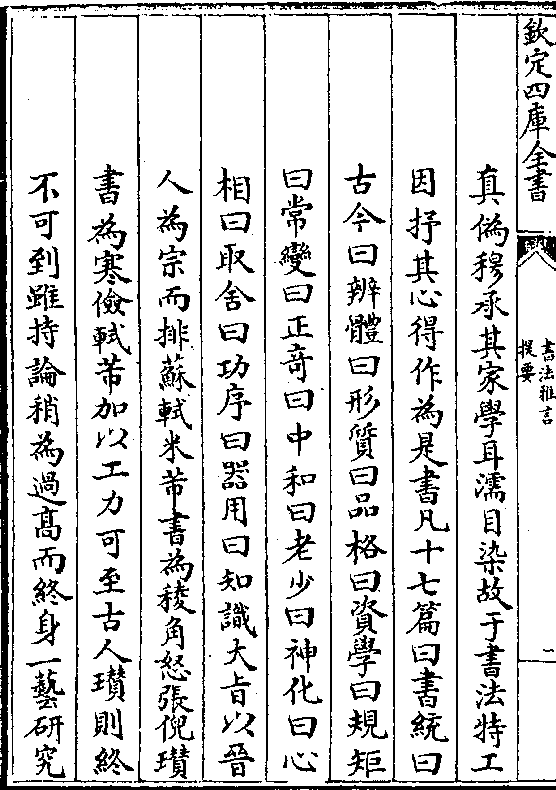 欽定四庫全書
書法雅言
提要
二
真偽穆承其家學耳濡目染故于書法特工
因抒其心得作為是書凡十七篇曰書統曰
古今曰辨體曰形質曰品格曰資學曰規矩
曰常變曰正竒曰中和曰老少曰神化曰心
相曰取舍曰功序曰器用曰知識大㫖以晉
人為宗而排蘇軾米芾書為稜角怒張倪瓚
書為寒儉軾芾加以工力可至古人瓚則終
不可到雖持論稍為過髙而終身一藝研究